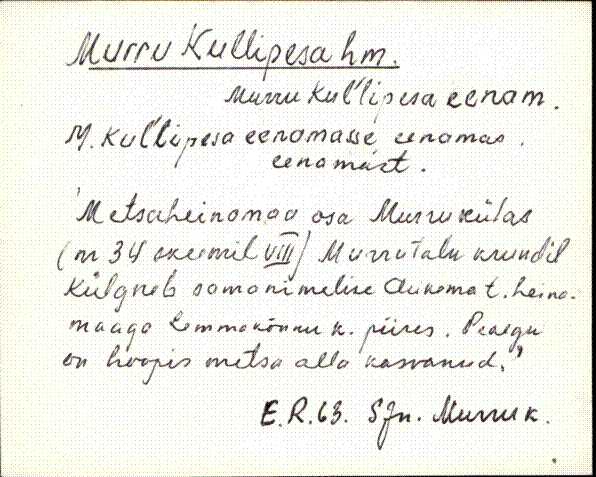 Murru Kullipesa hm.
Murru Kul'lipesa eenam.
M. Kul'lipesa eenamasse eenamas.
eenamast.
"Metsaheinamaa osa Murru külas
(nr 34 skeemil VIII) Murru talu krundil
Külgneb samanimelise t. heina-
maaga Lemmakõnnu k. piires. Praegu
on hoopis metsa alla kasvanud."
E.R. 63. SJn. Murru k.